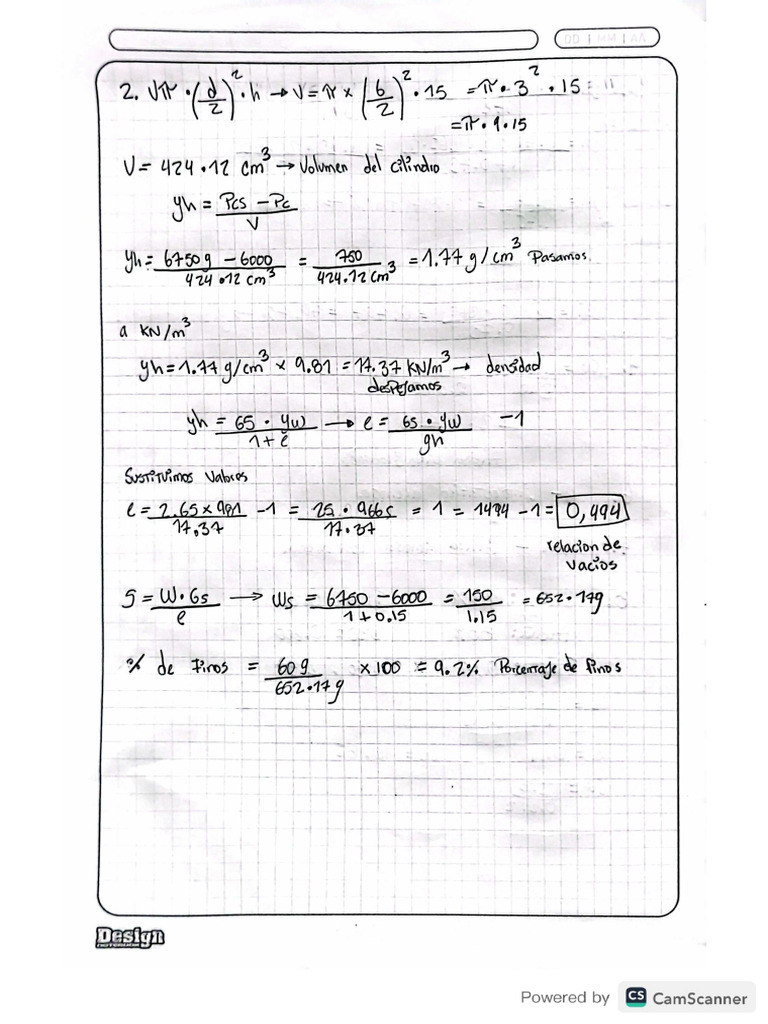 DD | MM | AA
2. Vπ · (d/2)² · h → V = π × (6/2)² · 15 = π · 3² · 15
= π · 9 · 15
V = 424.12 cm³ → Volumen del cilindro
γh = Pcs - Pc / V
γh = 6750g - 6000 / 424.12 cm³ = 750 / 424.12 cm³ = 1.77 g/cm³ Pasamos
a KN/m³
γh = 1.77 g/cm³ × 9.81 = 17.37 KN/m³ → densidad
despejamos
γh = GS · γw / 1+e → e = Gs · γw / γh - 1
Sustituimos Valores
e = 2.65 × 981 / 17.37 - 1 = 25.9665 / 17.37 = 1 = 1494 - 1 = 0,494
relacion de
vacios
S = W · Gs / e → Ws = 6750 - 6000 / 1 + 0.15 = 750 / 1.15 = 652.17g
% de Finos = 60g / 652.17g × 100 = 9.2% Porcentaje de finos
Design
Powered by CS CamScanner